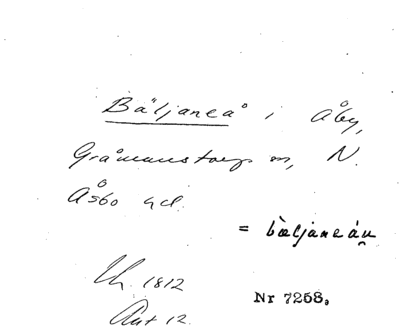 Bäljaneå i Åby,
Gråmanstorp sn, N.
Åsbo hd.
= bæljaneån
Uh. 1812
Akt 12.
Nr 7258,